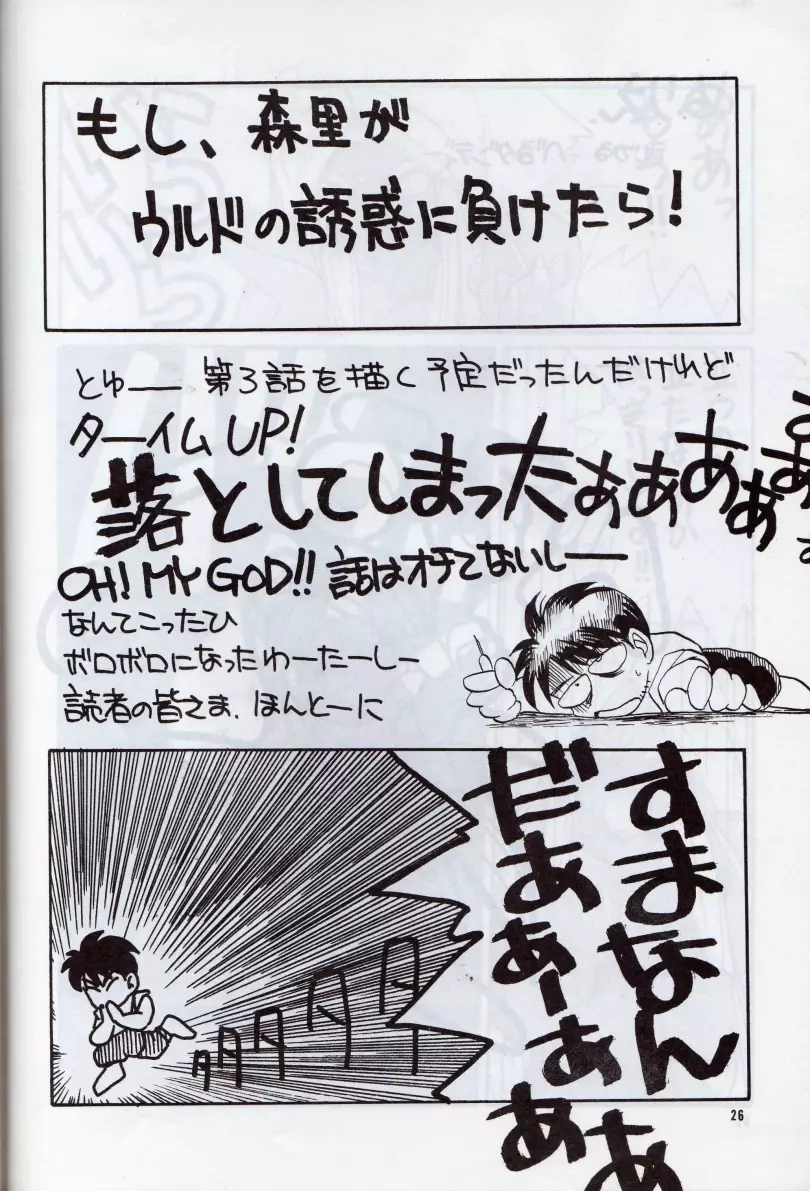 もし、森里が
ウルドの誘惑に負けたら!
とゅー 第3話を描く予定だったんだけれど
タイムUP!
落としてしまったぁぁぁぁぁ
OH! MY GOD!! 話はオチてないしー
なんてこったひ
ボロボロになったわーたーしー
読者の皆さま、ほんとーに
すまなん
だぁぁーぁぁぁ
26